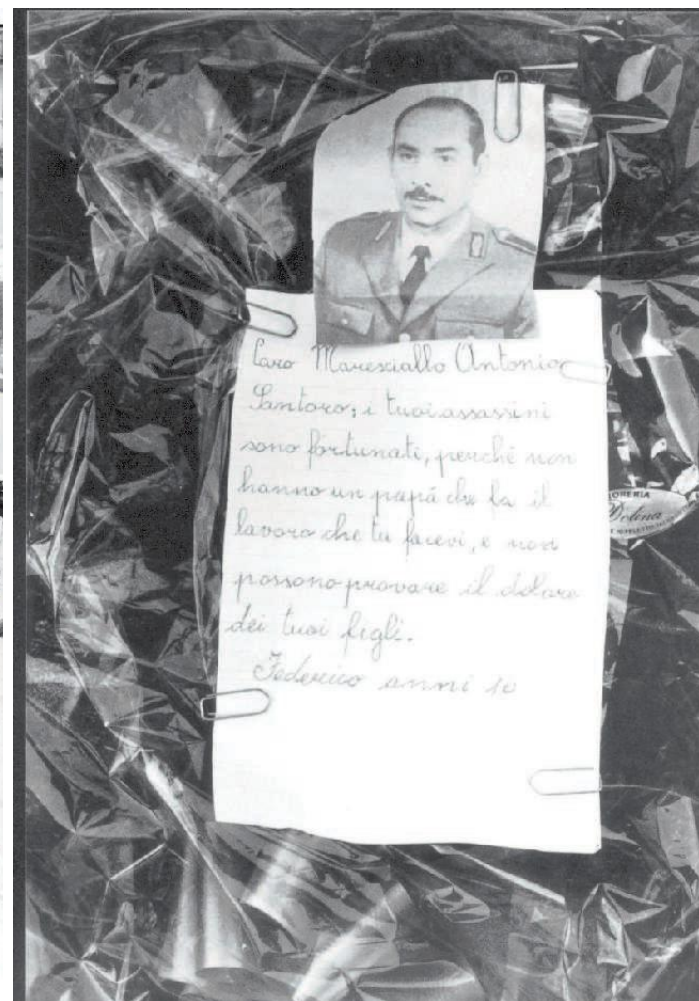 Caro Maresciallo Antonio
Santoro; i tuoi assassini
sono fortunati, perché non
hanno un papà che fa il
lavoro che tu facevi, e non
possono provare il dolore
dei tuoi figli.
Federico anni 10
Dolina